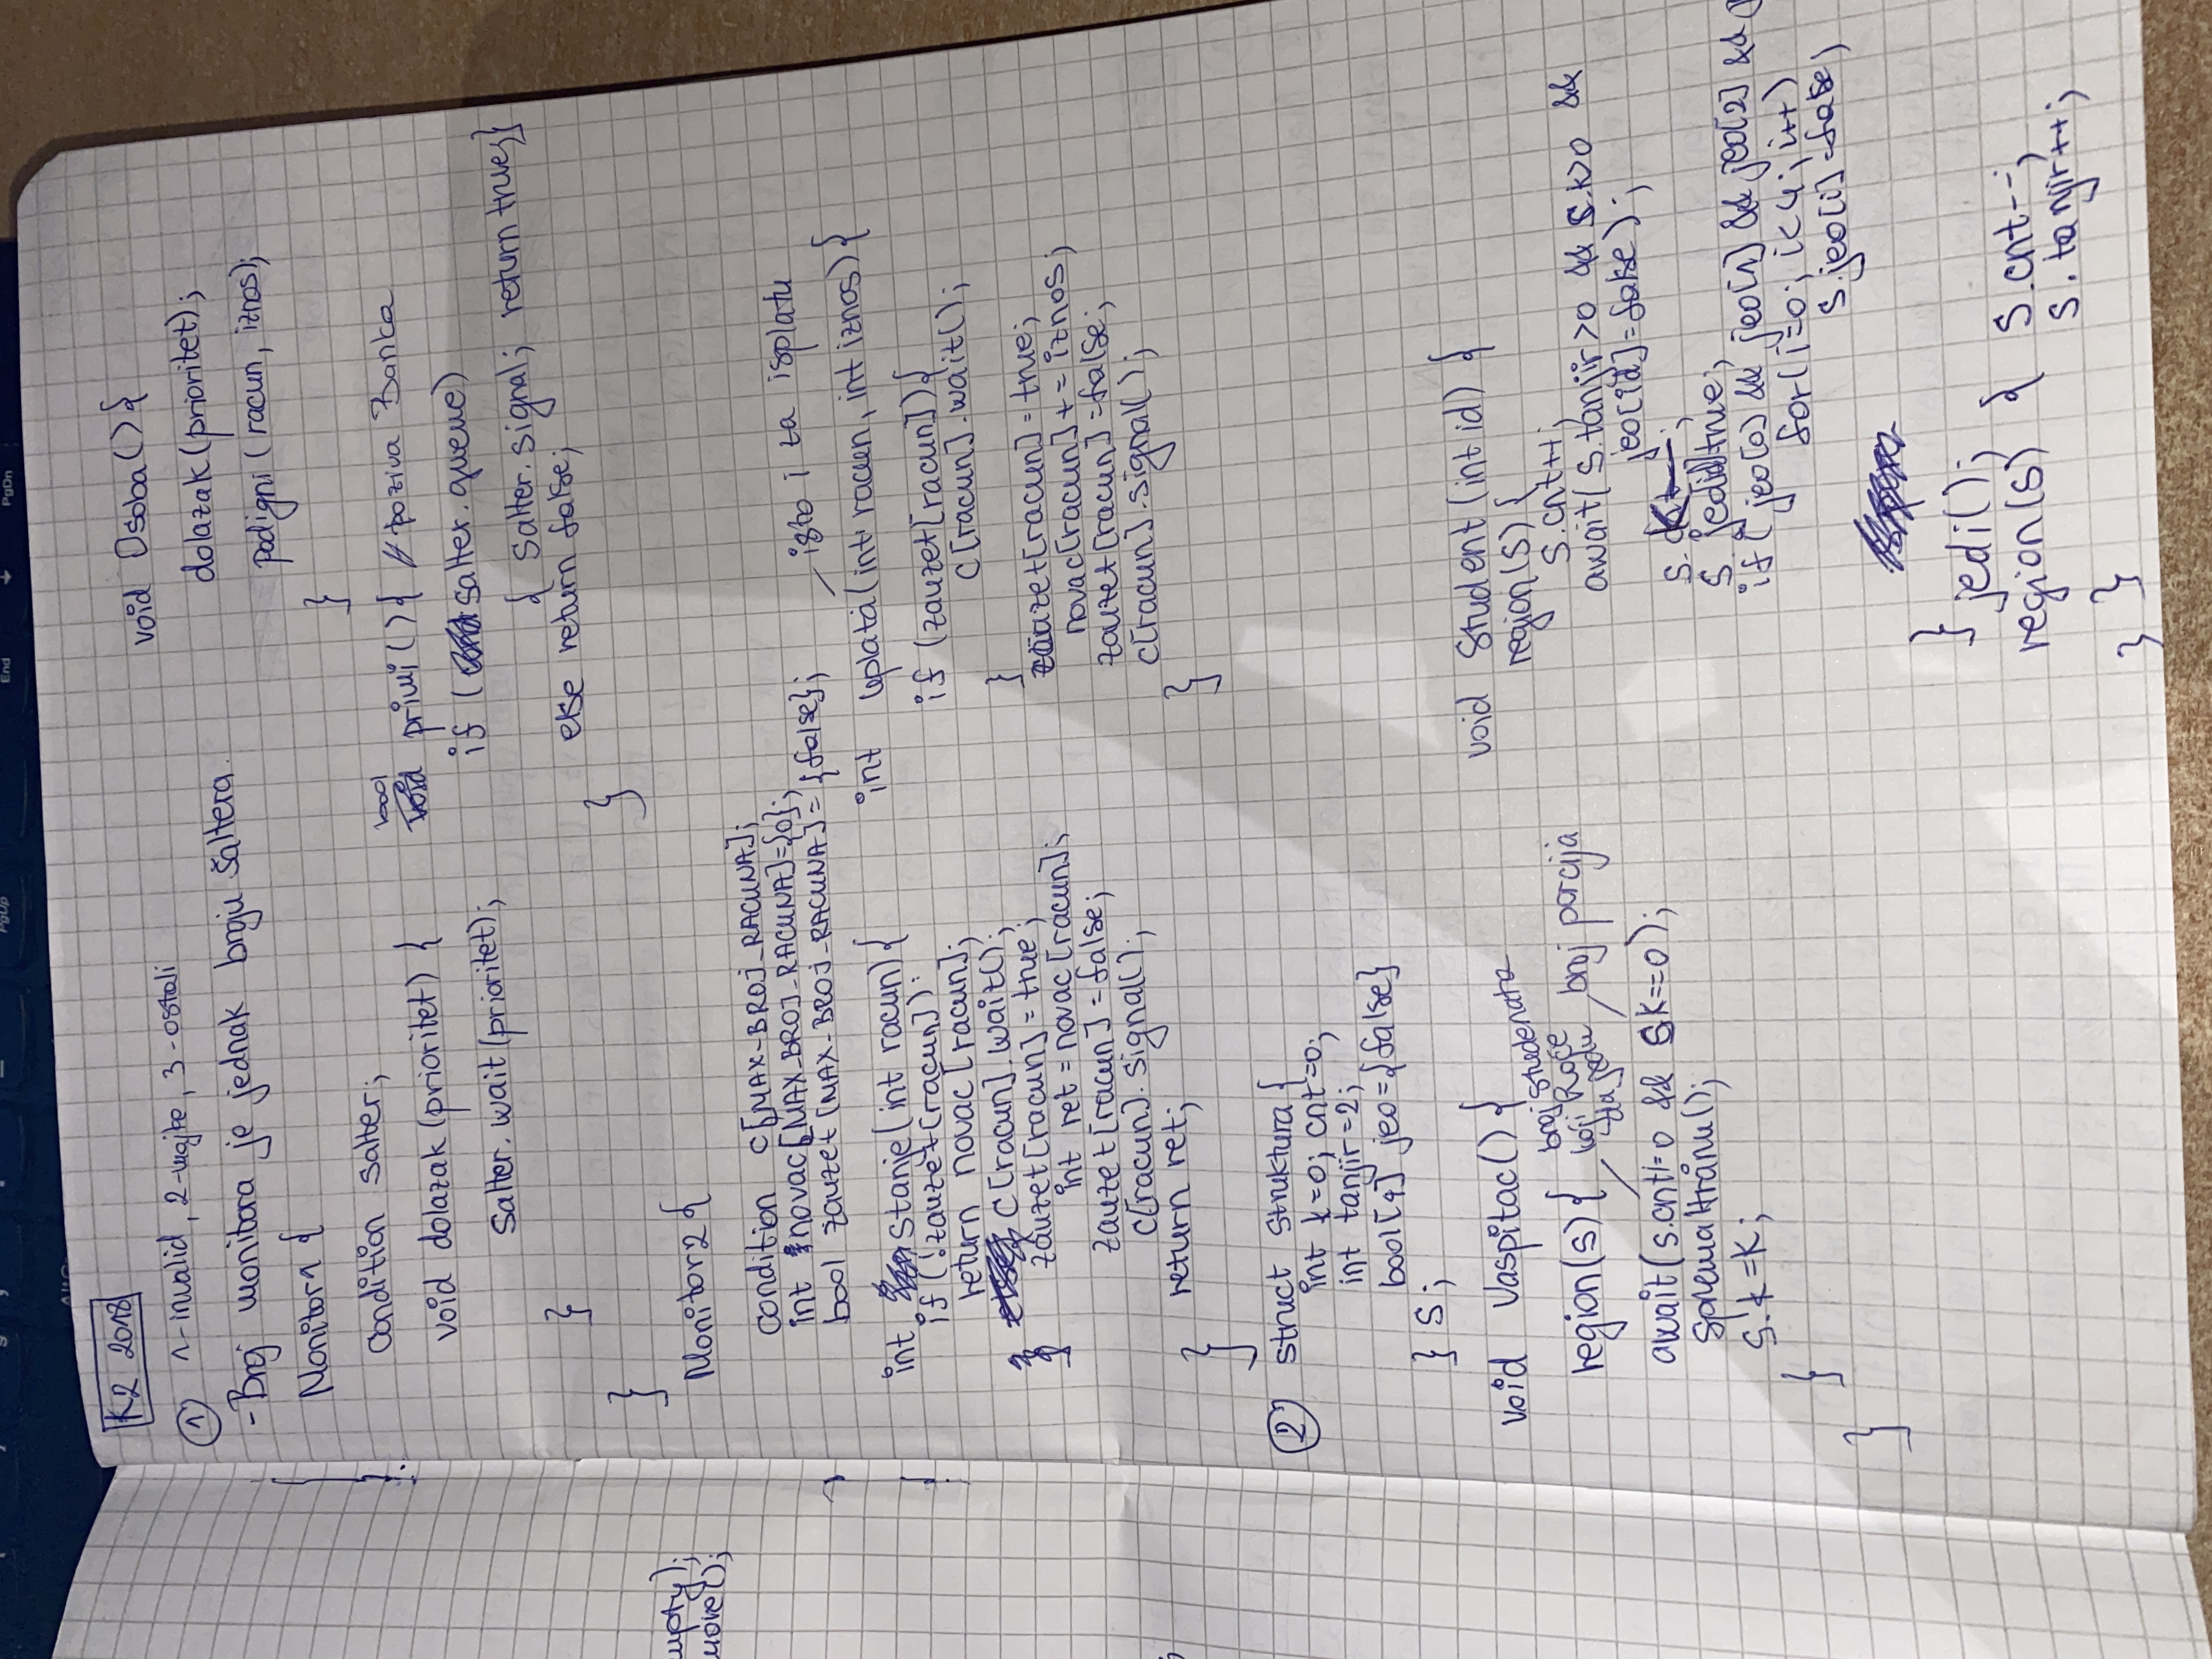 K2 2018
① 1-invalid, 2-majke, 3-ostali
-Broj monitora je jednak broju šaltera.
Monitor1 {
condition salter;
void dolazak (prioritet) {
salter. wait (prioritet);
}
}
void Osoba () {
dolazak (prioritet);
podigni (racun, iznos);
}
bool
void primi () { // poziva Banka
if ( salter. queue)
{ salter. signal; return true;}
else return false;
}
Monitor2 {
condition c[MAX-BROJ-RACUNA];
int novac[MAX-BROJ-RACUNA]={0};
bool zauzet [MAX-BROJ-RACUNA] = {false};
int stanje (int racun) {
if (!zauzet[racun])
return novac [racun];
else{ c[racun]. wait();
zauzet[racun] = true;
int ret = novac [racun];
zauzet[racun] = false;
c[racun]. signal();
return ret;
}
isto i za isplatu
int uplata (int racun, int iznos) {
if (zauzet[racun]) {
c[racun].wait();
}
zauzet[racun] = true;
novac[racun] += iznos;
zauzet[racun] = false;
c[racun].signal();
}
② struct struktura {
int k=0; cnt=0;
int tanjir=2;
bool[4] jeo={false}
} s;
void Vaspitac() {
region(s) {
broj studenata
koji hoće
da jedu
broj porcija
await(s.cnt!=0 && s.k==0);
spremaHranu();
s.k=K;
}
}
void Student (int id) {
region(s) {
s.cnt++;
await( s.tanjir>0 && s.k>0 &&
jeo[id]=false);
s. k--;
s. jeo[id]=true;
if( jeo[0] && jeo[1] && jeo[2] &&
for(i=0; i<4; i++)
s.jeo[i]=false;
}
jedi();
region(s) { s.cnt--;
s. tanjir++;
}
}
mpty);
move();
PgUp
End
PgDn